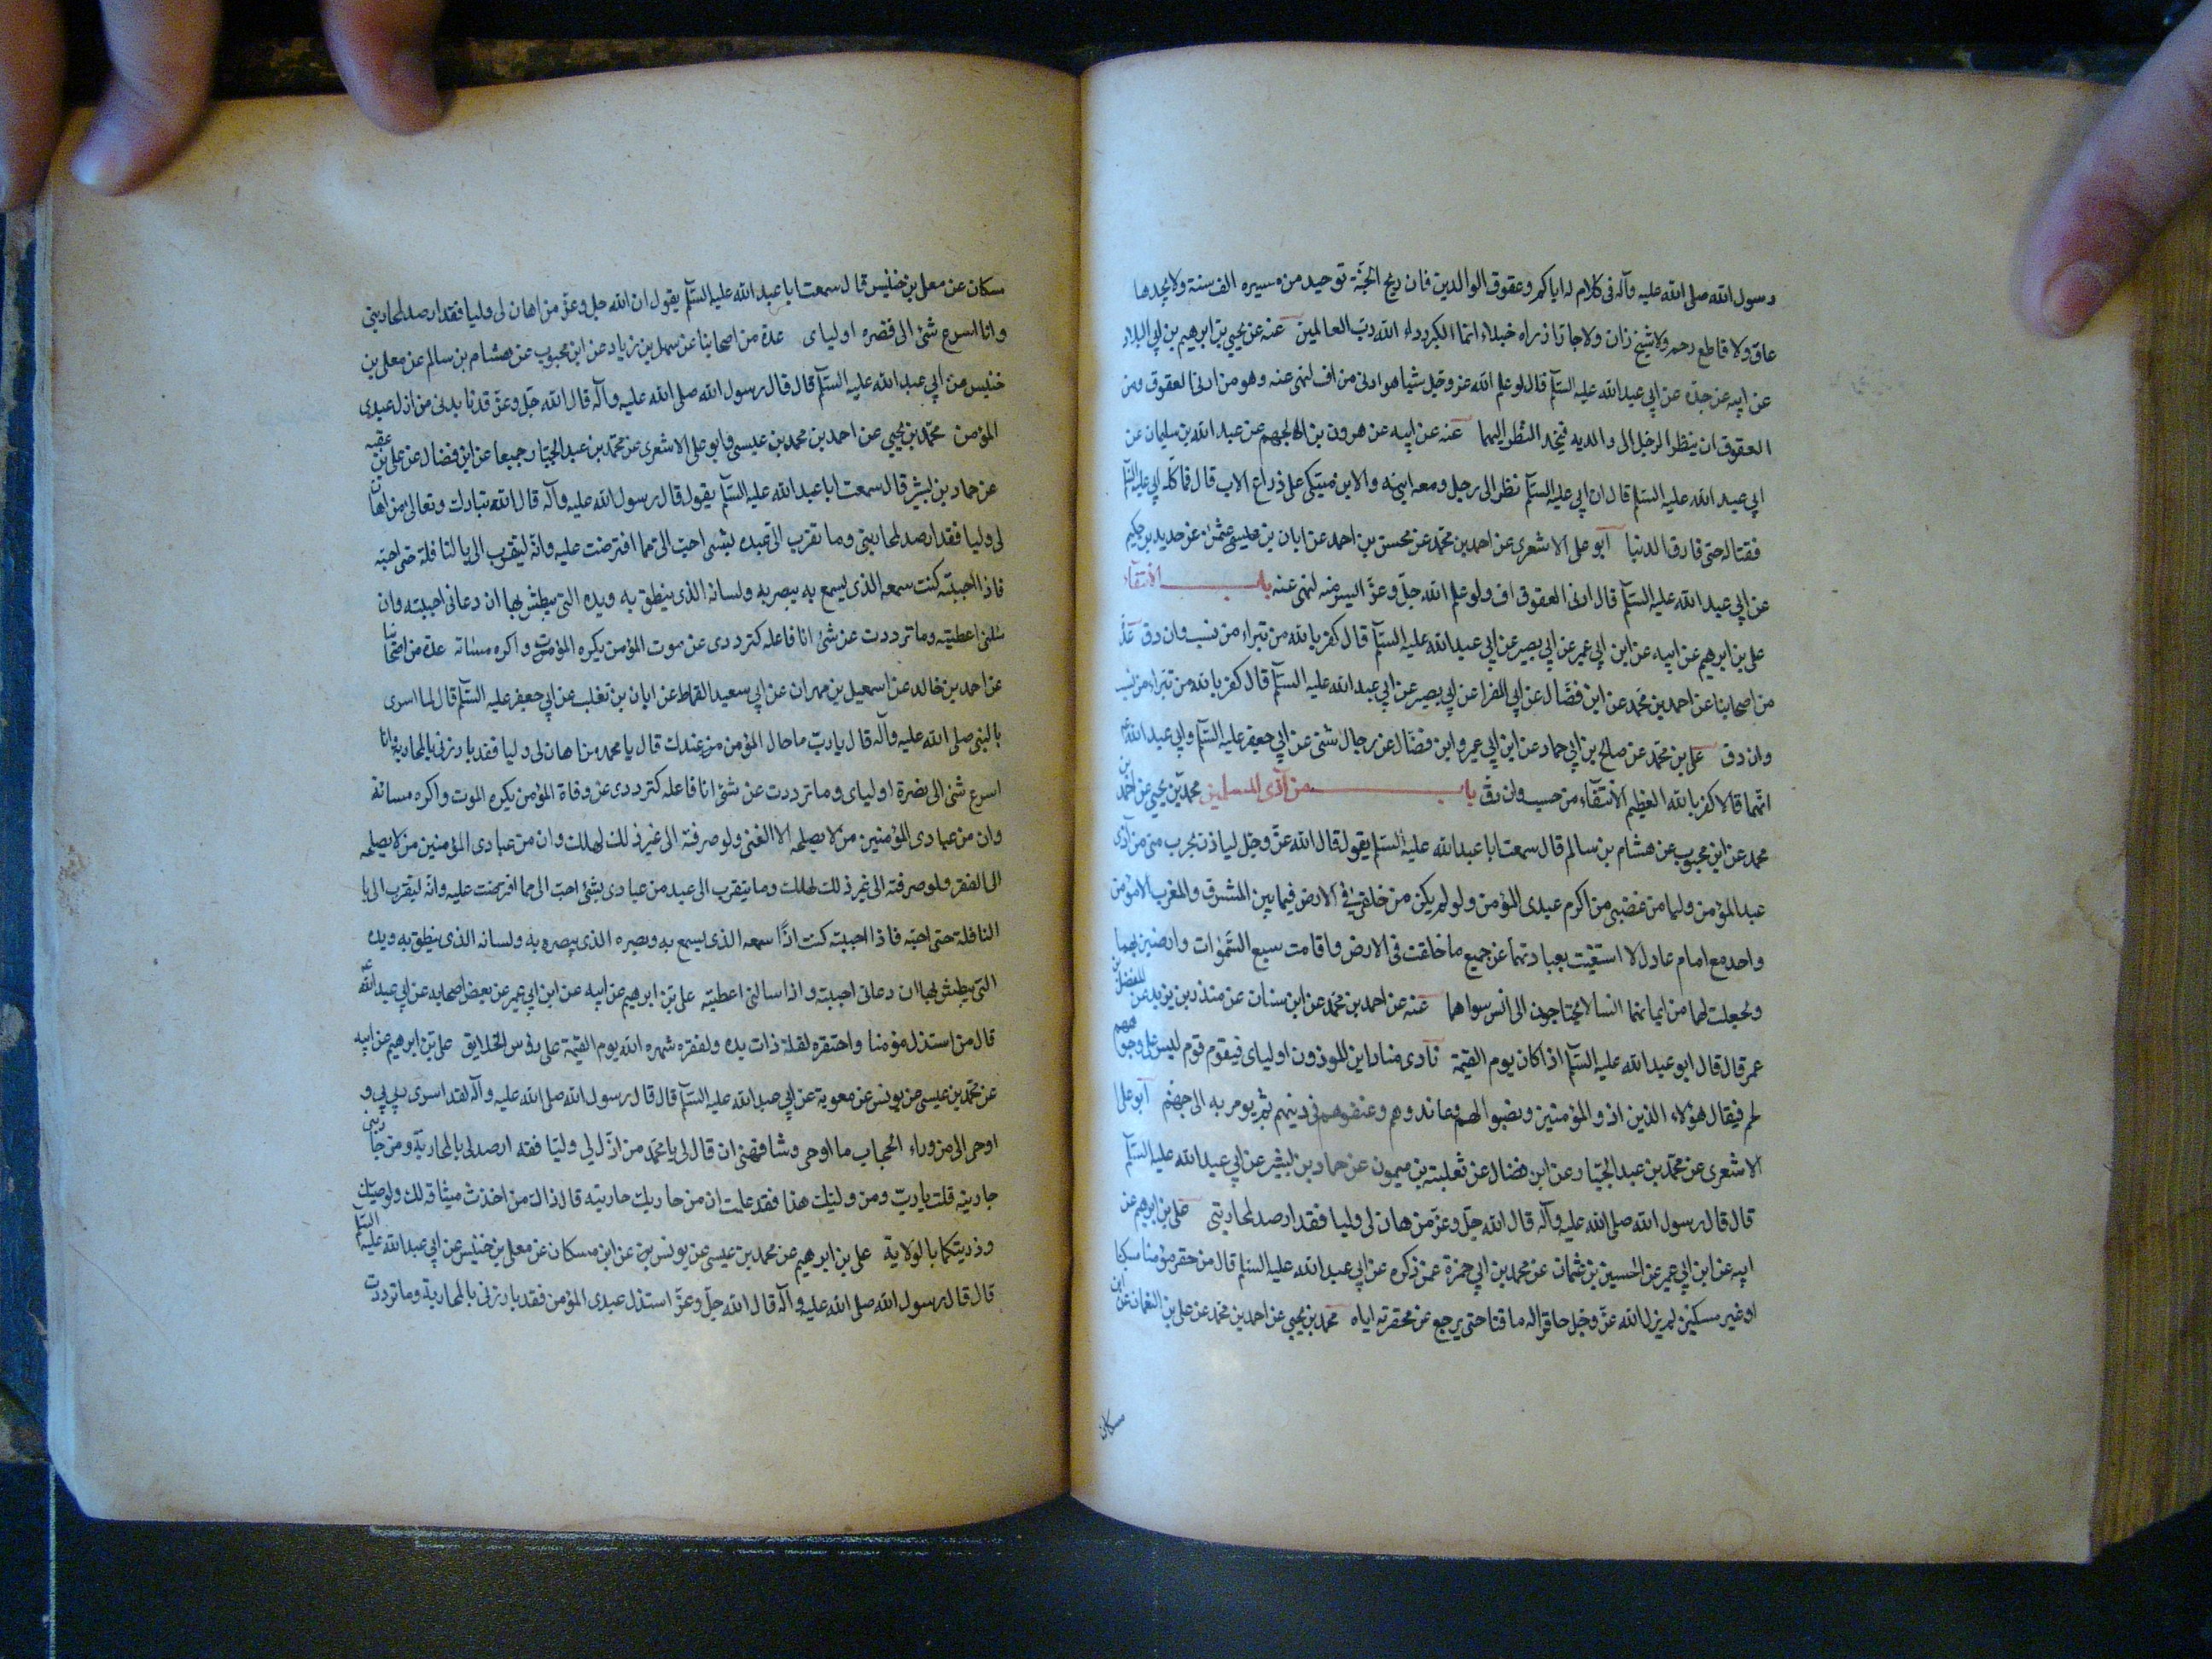 رسول الله صلى الله عليه وآله فى كلام له اياكم وعقوق الوالدين فان ريح الجنة توحيد من مسيره الف سنة ولا يجدها
عاق ولا قاطع رحم ولا شيخ زان ولا جار ازاره خيلاء انما الكبر رداء الله رب العالمين عنه عن يحيى بن ابرهيم بن ابي البلاد
عن ابيه عن جده عن ابي عبد الله عليه السلم قال لو علم الله عز وجل شيا هو ادنى من اف لنهى عنه وهو من ادنى العقوق ومن
العقوق ان ينظر الرجل الى والديه فيحد النظر اليهما عنه عن ابيه عن هرون بن الجهم عن عبد الله بن سليمان عن
ابي عبد الله عليه السلم قال ان ابي عليه السلم نظر الى رجل ومعه ابنه والابن متكى على ذراع الاب قال فما كلمه ابي عليه السلم
فقتاله حتى فارق الدنيا ابو على الاشعرى عن احمد بن محمد عن محسن بن احمد عن ابان بن عثمن عن حديد بن حكيم
عن ابي عبد الله عليه السلم قال ادنى العقوق اف ولو علم الله جل وعز ايسر منه لنهى عنه باب الانتفاء
على بن ابرهيم عن ابيه عن ابن ابي عمير عن ابي بصير عن ابي عبد الله عليه السلم قال كفر بالله من تبراء من نسب وان دق عدة
من اصحابنا عن احمد بن محمد عن ابن فضال عن ابي المغرا عن ابي بصير عن ابي عبد الله عليه السلم قال كفر بالله من تبراء من نسب
وان دق على بن محمد عن صالح بن ابي حماد عن ابن ابي عمير وابن فضال عن رجال شتى عن ابي جعفر عليه السلم وابي عبد الله
انهما قالا كفر بالله العظيم الانتفاء من حسب وان دق باب من آذى المسلمين محمد بن يحيى عن احمد بن
محمد عن ابن محبوب عن هشام بن سالم قال سمعت ابا عبد الله عليه السلم يقول قال الله عز وجل لياذن بحرب منى من آذى
عبد المؤمن وليامن غضبى من اكرم عبدى المؤمن ولو لم يكن من خلقى فى الارض فيما بين المشرق والمغرب الا مؤمن
واحد مع امام عادل لا استغنيت بعبادتهما عن جميع ما خلقت فى الارض ولقامت سبع السموات وارضين بهما
ولجعلت لهما من ايمانهما انسا لا يحتاجون الى انس سواهما عنه عن احمد بن محمد عن ابن سنان عن منذر بن يزيد عن المفضل بن
عمر قال قال ابو عبد الله عليه السلم اذا كان يوم القيمة نادى مناد اين الموذون اولياى فيقوم قوم ليس على وجوههم
لحم فيقال هؤلاء الذين اذوا المؤمنين ونصبوا لهم وعاندوهم وعنفوهم فى دينهم ثم يومر به الى جهنم ابو على
الاشعرى عن محمد بن عبد الجبار عن ابن فضال عن ثعلبة بن ميمون عن حماد بن بشير عن ابي عبد الله عليه السلم
قال قال رسول الله صلى الله عليه وآله قال الله جل وعز من هان لى وليا فقد ارصد لمحاربتى على بن ابرهيم عن
ابيه عن ابن ابي عمير عن الحسين بن عثمان عن محمد بن ابي حمزة عمن ذكره عن ابي عبد الله عليه السلم قال من حقر مؤمنا مسكينا
او غير مسكين لم يزل الله عز وجل حاقرا له ماقتا حتى يرجع عن محقرته اياه محمد بن يحيى عن احمد بن محمد عن على بن النعمان عن ابن
مسكان
مسكان عن معلى بن خنيس قال سمعت ابا عبد الله عليه السلم يقول ان الله جل وعز من اهان لى وليا فقد ارصد لمحاربتى
وانا اسرع شئ الى نصره اولياى عدة من اصحابنا عن سهل بن زياد عن ابن محبوب عن هشام بن سالم عن معلى بن
خنيس عن ابي عبد الله عليه السلم قال قال رسول الله صلى الله عليه وآله قال الله جل وعز قد نابذنى من اذل عبدى
المؤمن محمد بن يحيى عن احمد بن محمد بن عيسى وابو على الاشعرى عن محمد بن عبد الجبار جميعا عن ابن فضال عن على بن عقبه
عن حماد بن بشير قال سمعت ابا عبد الله عليه السلم يقول قال رسول الله عليه وآله قال الله تبارك وتعالى من اهان
لى وليا فقد ارصد لمحاربتى وما تقرب الى عبده بشى احب الى مما افترضت عليه وانه ليتقرب الى بالنافلة حتى احبه
فاذا احببته كنت سمعه الذى يسمع به يبصر به ولسانه الذى ينطق به ويده التى يبطش بها ان دعانى اجبته وان
سئلنى اعطيته وما ترددت عن شئ انا فاعله كترددى عن موت المؤمن يكره الموت واكره مساته عدة من اصحابنا
عن احمد بن خالد عن اسمعيل بن مهران عن ابي سعيد القماط عن ابان بن تغلب عن ابي جعفر عليه السلم قال لما اسرى
بالنبى صلى الله عليه وآله قال يا رب ما حال المؤمن من عندك قال يا محمد من اهان لى وليا فقد بارزنى بالمحاربة وانا
اسرع شئ الى نصرة اولياى وما ترددت عن شئ انا فاعله كترددى عن وفاة المؤمن يكره الموت واكره مساته
وان من عبادى المؤمنين من لا يصلحه الا الغنى ولو صرفته الى غير ذلك لهلك وان من عبادى المؤمنين من لا يصلحه
الى الفقر ولو صرفته الى غير ذلك لهلك وما يتقرب الى عبد من عبادى بشئ احب الى مما افترضت عليه وانه ليقرب الى با
النافلة حتى احبه فاذا احببته كنت اذا سمعه الذى يسمع به وبصره الذى يبصر به ولسانه الذى ينطق به ويده
التى يبطش بها ان دعانى اجبته واذا سالنى اعطيته على بن ابرهيم عن ابيه عن ابن ابي عمير عن بعض اصحابه عن ابي عبد الله
قال من استذل مؤمنا واحتقره لقلة ذات يده ولفقره شهره الله يوم القيمة على رؤس الخلايق على بن ابرهيم عن ابيه
عن محمد بن عيسى عن يونس عن معوية عن ابي عبد الله عليه السلم قال قال رسول الله صلى الله عليه وآله لقد اسرى ربي بي و
اوحى الى من وراء الحجاب ما اوحى وشافهنى ان قال لى يا محمد من اذل لي وليا فقد ارصد لى بالمحاربة ومن حاربنى
حاربته قلت يا رب ومن وليك هذا فقد علمت ان من حاربك حاربته قال ذاك من اخذت ميثاقه لك ولوصيك
وذريتكما بالولاية على بن ابرهيم عن محمد بن عيسى عن يونس عن ابن مسكان عن معلى بن خنيس عن ابي عبد الله عليه السلم
قال قال رسول الله صلى الله عليه وآله قال الله جل وعز استذل عبدى المؤمن فقد بارزنى بالمحاربة وما ترددت